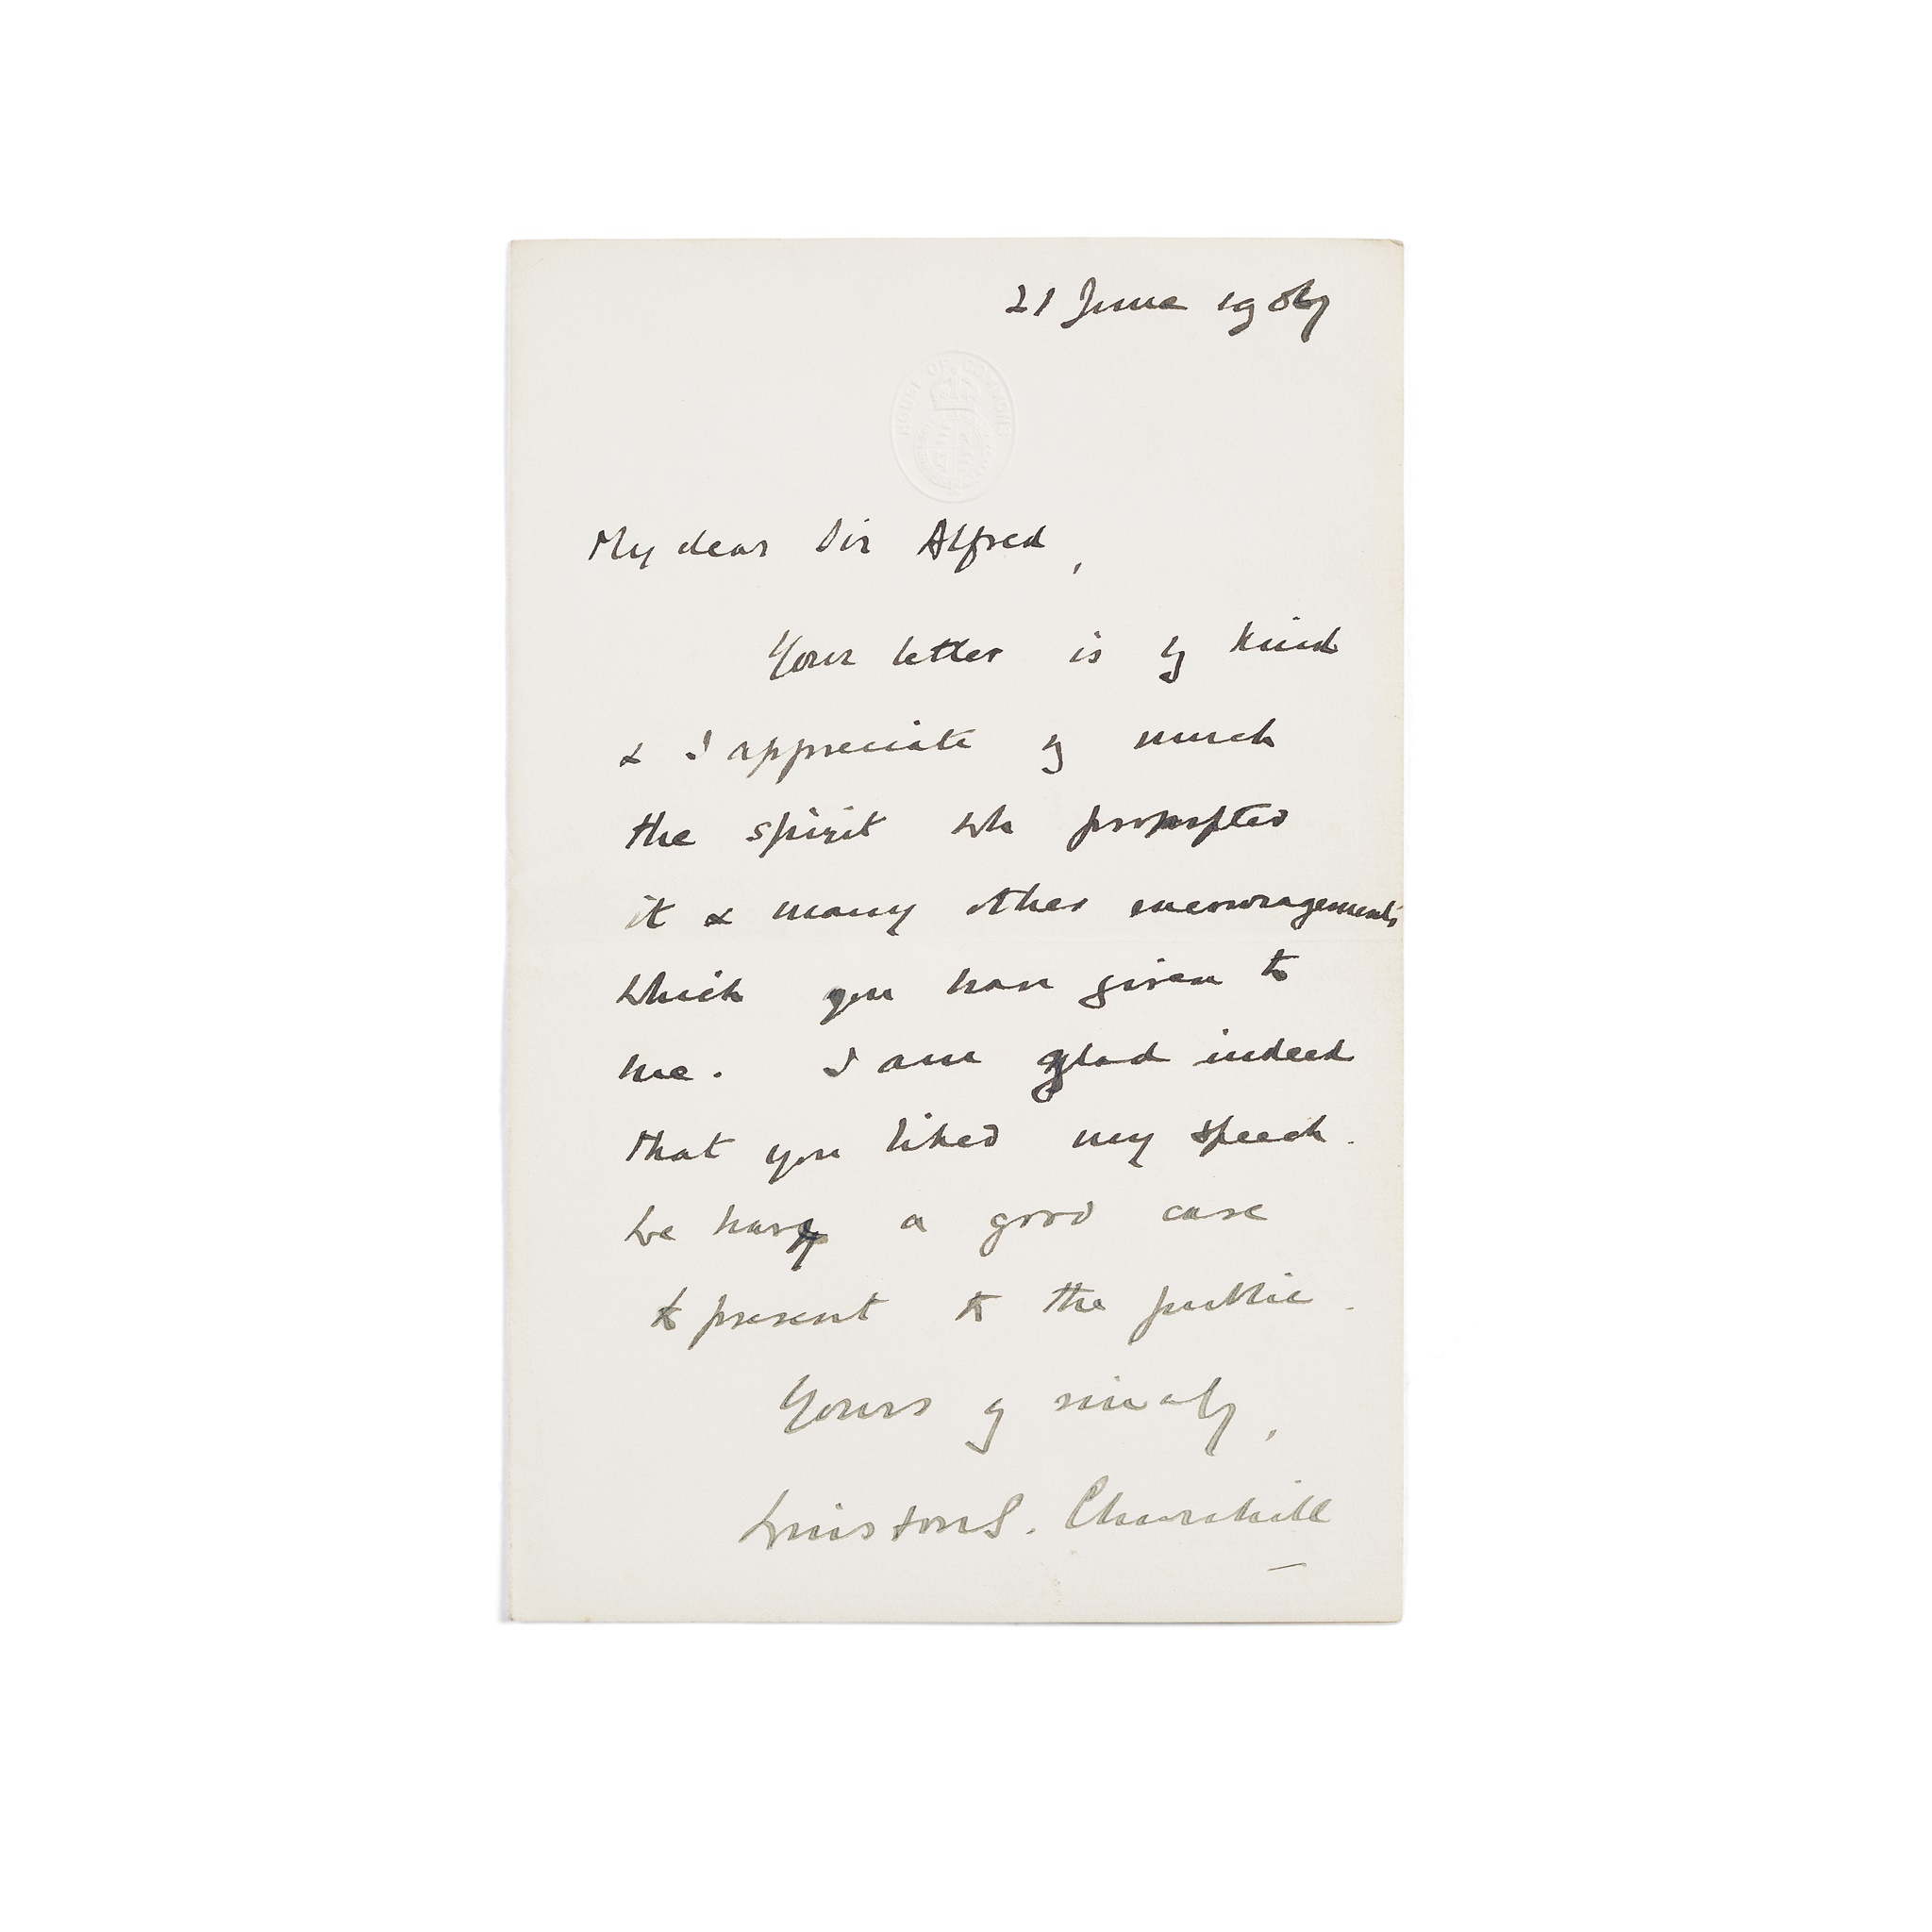 21 June 1907
HOUSE OF COMMONS
My dear Sir Alfred,
Your letter is vy kind
& I appreciate vy much
the spirit wh prompted
it & many other encouragements
which you have given to
me. I am glad indeed
that you liked my speech.
We have a good case
to present to the public.
Yours vy sincely,
Winston S. Churchill